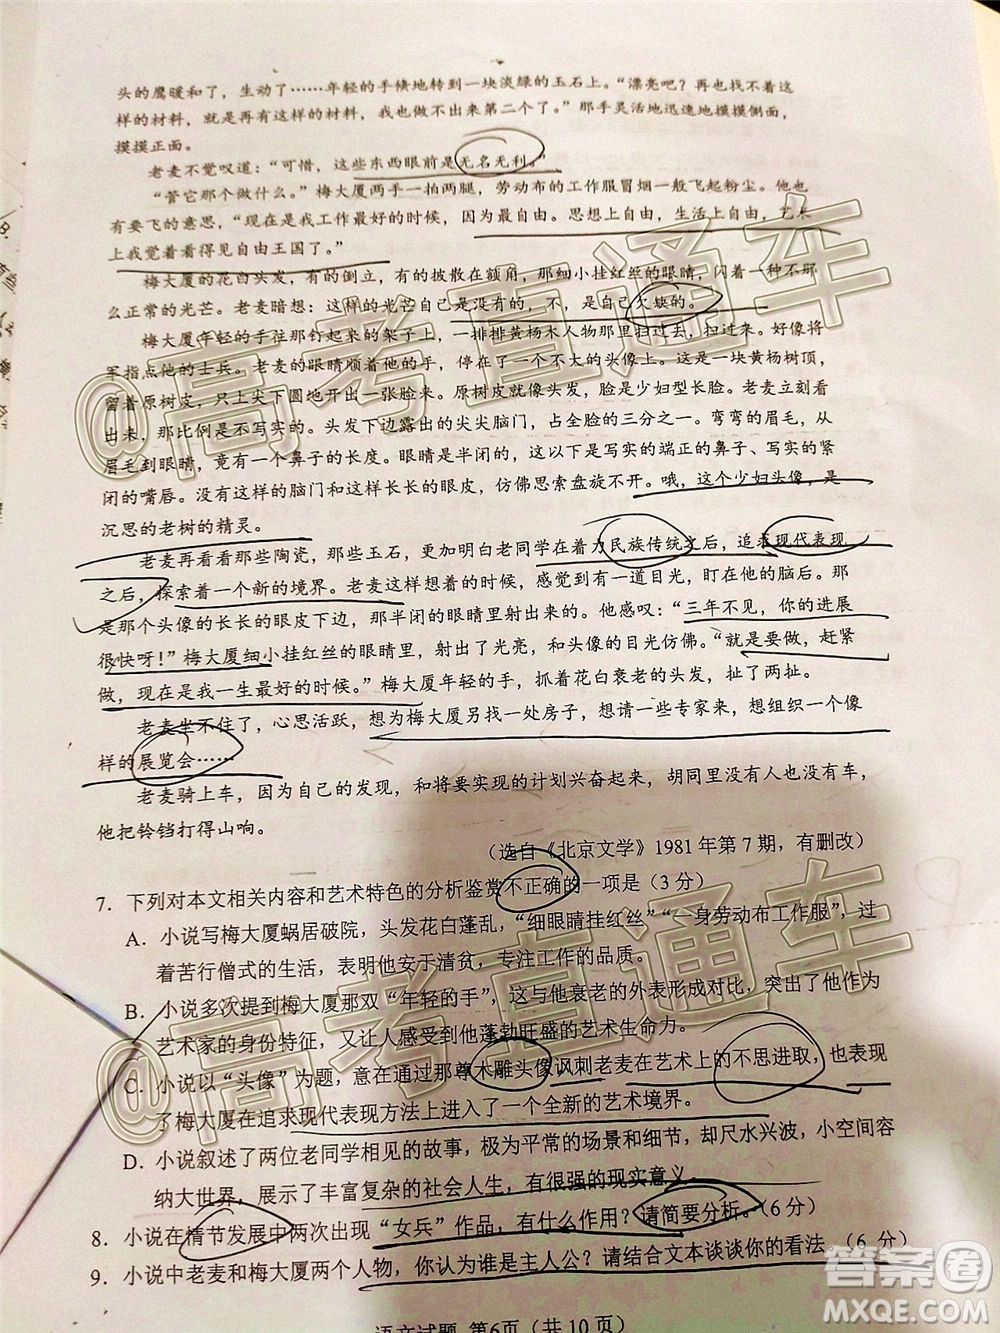 头的鹰暖和了，生动了……年轻的手倏地转到一块淡绿的玉石上。“漂亮吧？再也找不到这
样的材料，就是再有这样的材料，我也做不出来第二个了。”那手灵活地迅速地摸摸侧面，
摸摸正面。
老麦不觉叹道：“可惜，这些东西眼前是无名无利。”
“管它那个做什么。”梅大厦两手一拍两腿，劳动布的工作服冒烟一般飞起粉尘。他
有要飞的意思，“现在是我工作最好的时候，因为最自由。思想上自由，生活上自由，艺术
上我觉着看得见自由王国了。”
梅大厦的花白头发，有的倒立，有的披散在额角，细小挂红丝的眼睛，闪着一种不那
么正常的光芒。老麦暗想：这样的光芒自己是没有的，不，是自己欠缺的。
梅大厦年轻的手往那钉起来的架子上，一排排黄杨木人物那里扫过去，扫过去。好像将
军指点他的士兵。老麦的眼睛跟着他的手，停在了一个不大的头像上。这是一块黄杨树顶，
留着原树皮，只上尖下圆地开出来一张脸来。原树皮就像头发，是少妇型长脸。老麦立刻看
出来，那比例是不写实的。头发下边露出的尖尖脑门，占全脸的三分之一。弯弯的眉毛，从
眉毛到眼睛，竟有一个鼻子的长度。眼睛是半闭的，这以下是写实的端正的鼻子、写实的紧
闭的嘴唇。没有这样的脑门和这样长长的眼皮，仿佛思索盘旋不开。哦，这个少妇头像，是
沉思的老树的精灵。
老麦再看看那些陶瓷，那些玉石，更加明白老同学在着力民族传统之后，追求现代表现
之后，探索着一个新的境界。老麦这样想着的时候，感觉到有一道目光，盯在他的脑后。那
是那个头像的长长的眼皮下边，从半闭的眼睛里射出来的。他感叹：“三年不见，你的进展
很快呀！”梅大厦细小挂红丝的眼睛里，射出了光亮，和头像的目光仿佛。“就是要做，赶紧
做，现在是我一生最好的时候。”梅大厦年轻的手，抓着花白衰老的头发，扯了两扯。
老麦坐不住了，心思活跃，想为梅大厦另找一处房子，想请一些专家来，想组织一个像
样的展览会……
老麦骑上车，为自己的发现，和将要实现的计划兴奋起来，胡同里也没有车，
他把铃铛打得山响。
（选自《北京文学》1981年第7期，有删改）
7．下列对本文相关内容和艺术特色的分析鉴赏不正确的一项是（3分）
A．小说写梅大厦蜗居破院，头发花白蓬乱，“细眼睛挂红丝”“一身劳动布工作服”，过
着苦行僧式的生活，表明他安于清贫，专注工作的品质。
B．小说多次提到梅大厦那双“年轻的手”，这与他衰老的外表形成对比，突出了他作为
艺术家的身份特征，又让人感受到他蓬勃旺盛的艺术生命力。
C．小说以“头像”为题，意在通过那尊木雕头像讽刺老麦在艺术上的不思进取，也表现
了梅大厦在追求现代表现方法上进入了一个全新的艺术境界。
D．小说叙述了两位老同学的故事，极为平常的场景和细节，却尺水兴波，小空间容
纳大世界，展示了丰富复杂的社会人生，有很强的现实意义。
8．小说在情节发展中两次出现“女兵”作品，有什么作用？请简要分析。（6分）
9．小说中老麦和梅大厦两个人物，你认为谁是主人公？请结合文本谈谈你的看法。（6分）
语文试题 第6页（共10页）
@高考直通车
@高考直通车
答案圈
MXQE.COM